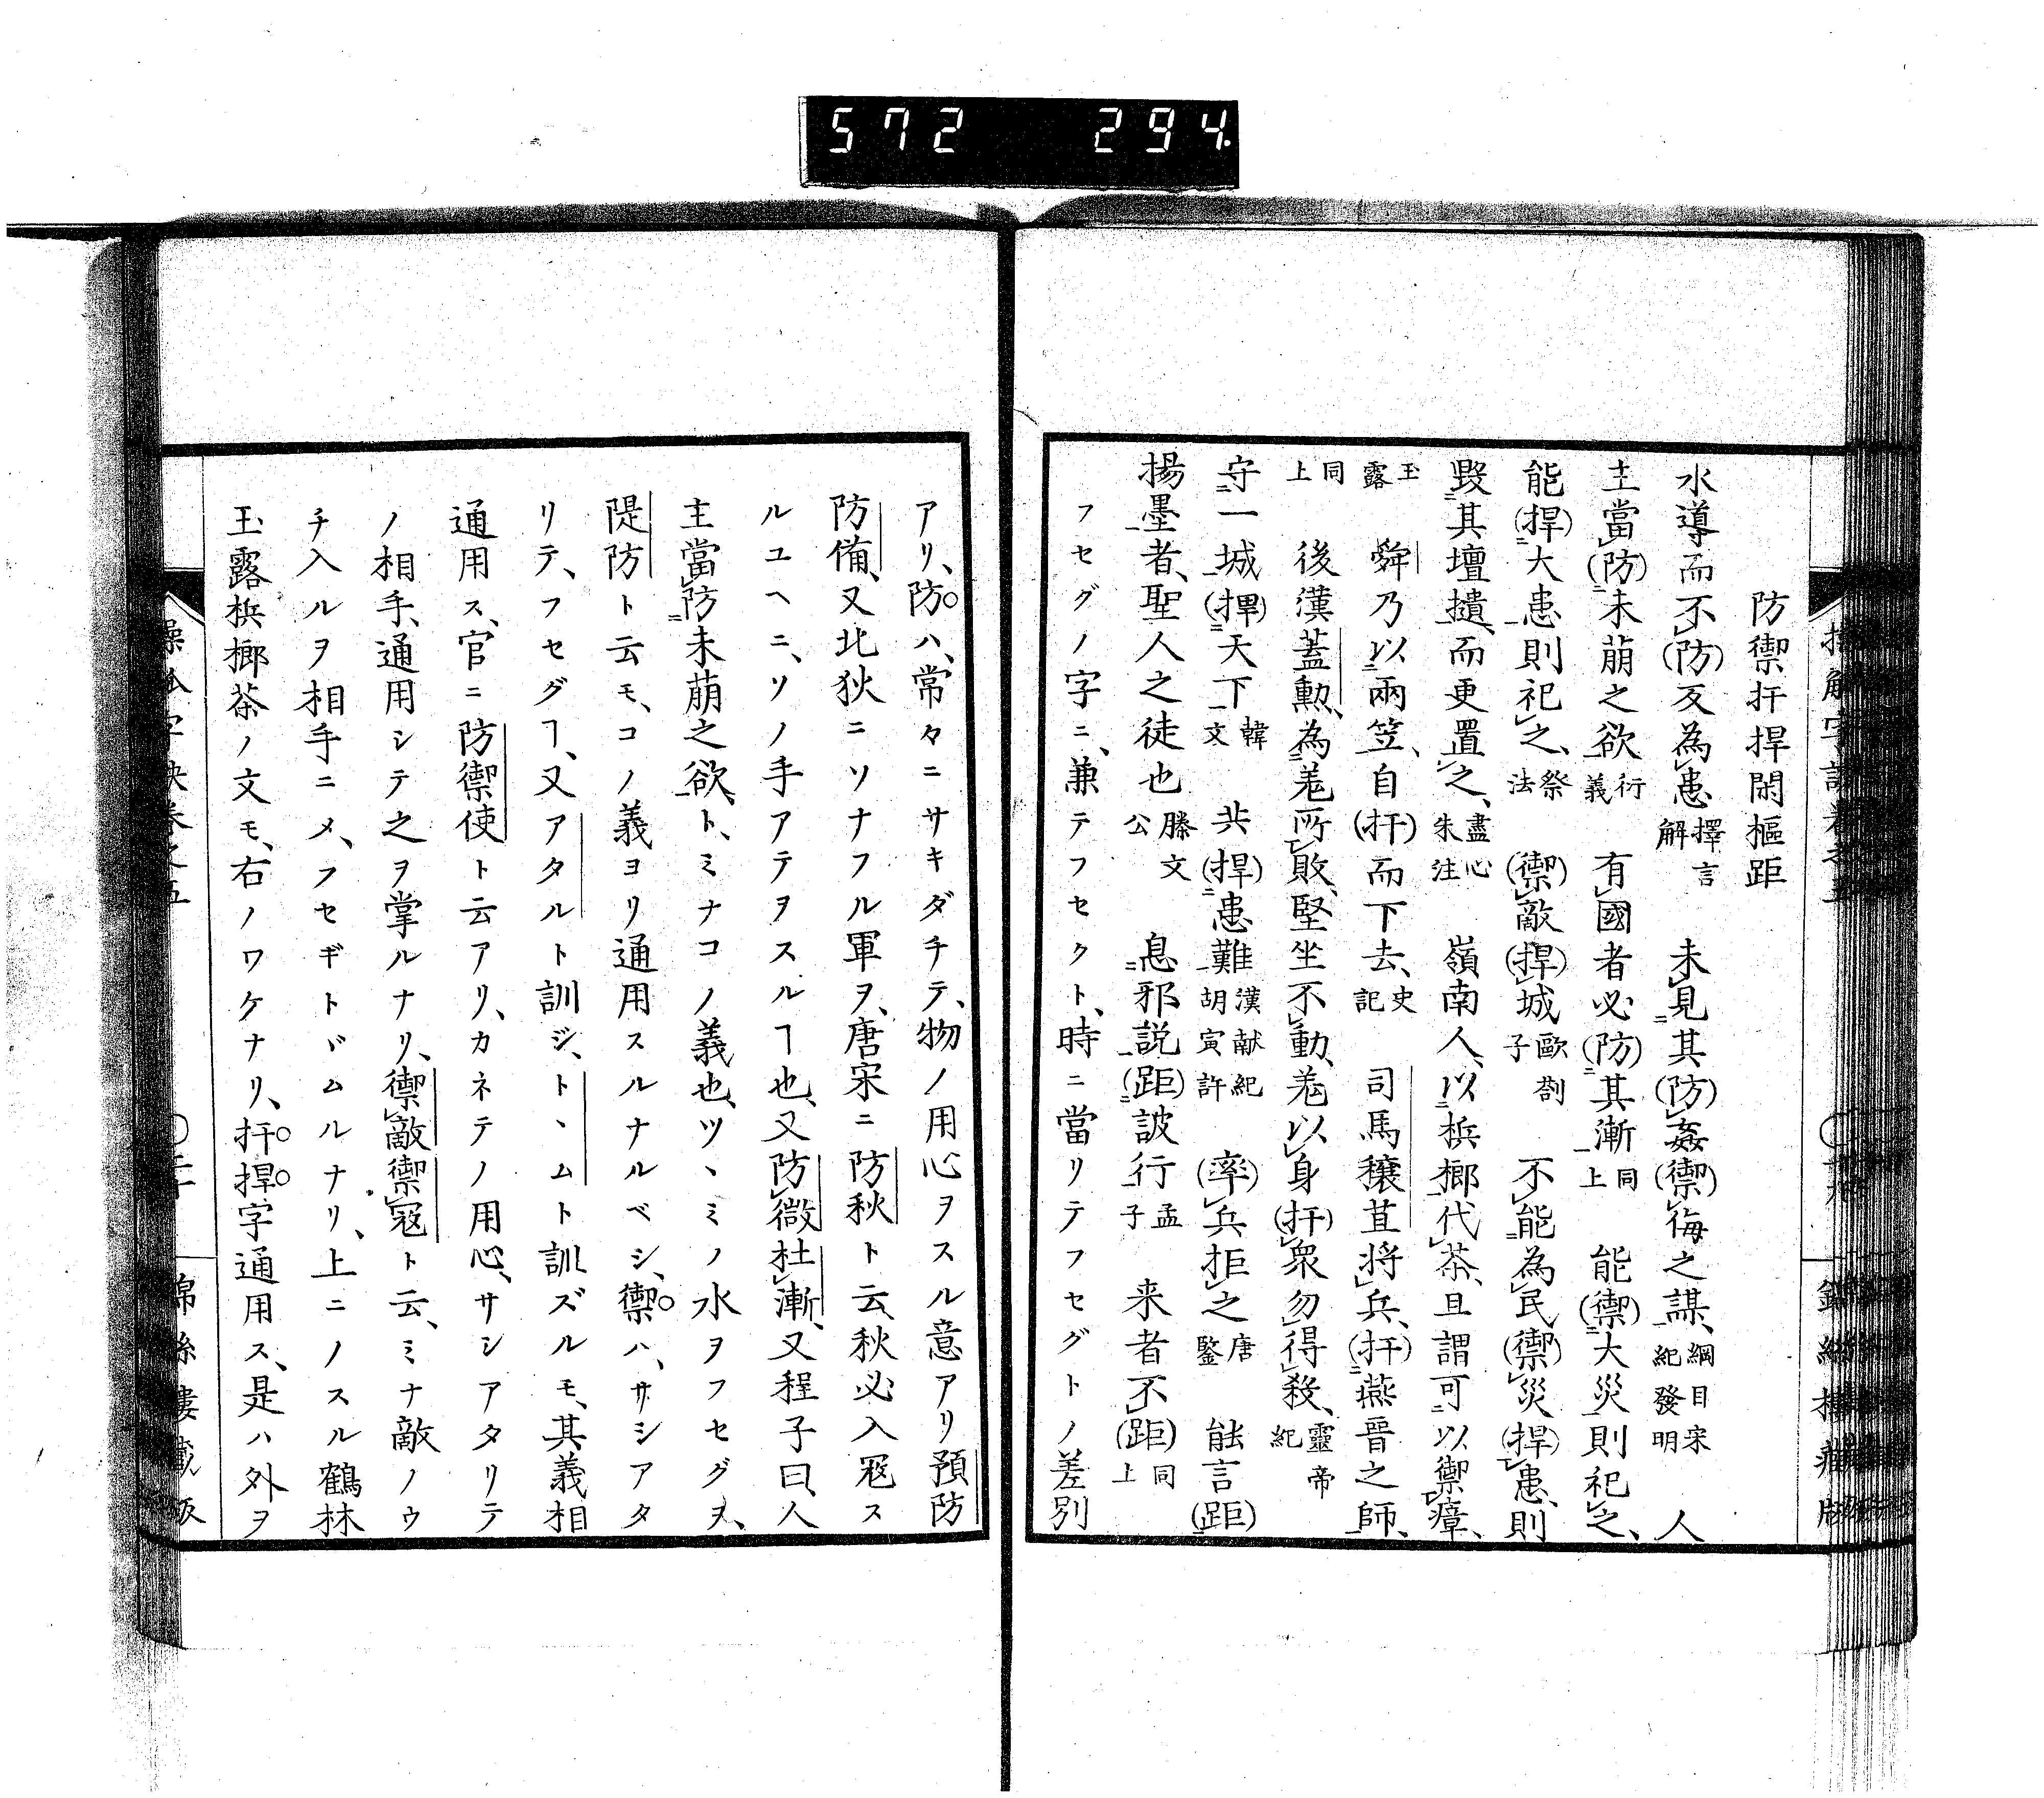 572 294.
防禦扞捍閑樞距
水導而不(防)反為患擇言解 未見其(防)姦(禦)侮之謀、綱目宋紀發明 人
主當(防)未萠之欲衍義 有國者必(防)其漸同上 能(禦)大災則祀之、
能(捍)大患則祀之、祭法 (禦)敵(捍)城歐劄子 不能為民(禦)災(捍)患、則
毀其壇壝、而更置之、盡心朱注 嶺南人、以梹榔代茶、且謂可以禦瘴、
玉露 舜乃以兩笠、自(扞)而下去、史記 司馬穰苴將兵、(扞)燕晉之師、
同上 後漢蓋勳、為羗所敗、堅坐不動、羗以身(扞)衆勿得殺、靈帝紀
守一城(捍)天下韓文 共(捍)患難漢献紀胡寅許 (率)兵拒之唐鑒 能言(距)
揚墨者、聖人之徒也滕文公 息邪説(距)詖行孟子 来者不(距)同上
フセグノ字ニ、兼テフセクト、時ニ當リテフセグトノ差別
アリ、防ハ、常々ニサキダチテ、物ノ用心ヲスル意アリ預防
防備、又北狄ニソナフル軍ヲ、唐宋ニ防秋ト云、秋必入冦ス
ルユヘニ、ソノ手アテヲスルヿ也、又防微杜漸、又程子曰、人
主當防未萠之欲、ト、ミナコノ義也、ツヽミノ水ヲフセグヲ、
隄防ト云モ、コノ義ヨリ通用スルナルベシ、禦ハ、サシアタ
リテ、フセグヿ、又アタルト訓ジ、トヽムト訓ズルモ、其義相
通用ス、官ニ防禦使ト云アリ、カネテノ用心、サシアタリテ
ノ相手、通用シテ之ヲ掌ルナリ、禦敵禦冦ト云、ミナ敵ノウ
チ入ルヲ相手ニメ、フセギトヾムルナリ、上ニノスル鶴林
玉露梹榔茶ノ文モ、右ノワケナリ、扞捍字通用ス、是ハ外ヲ